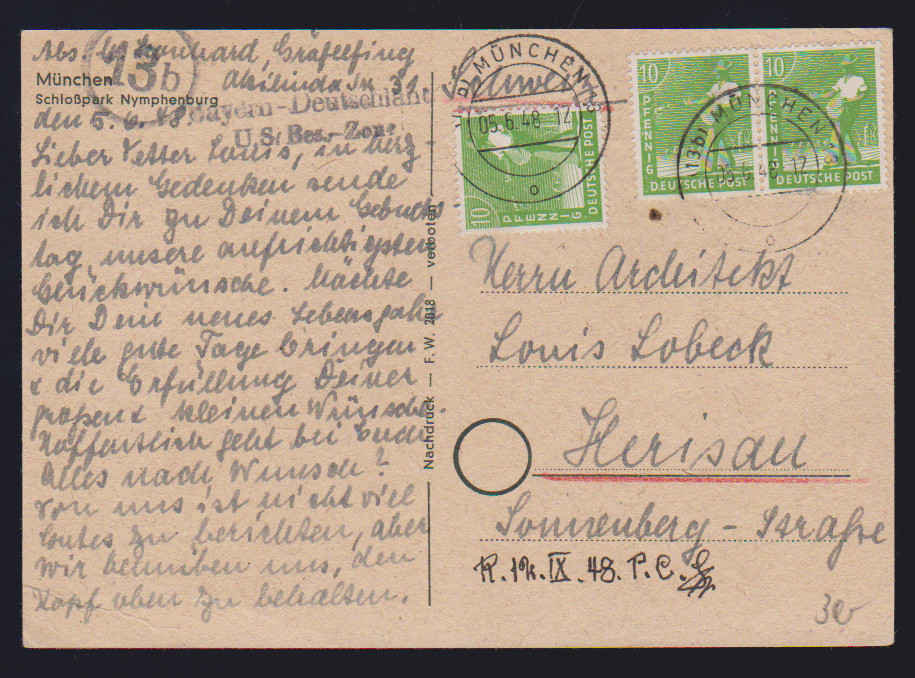 Abs. Leonhard, Gräfelfing
13b
München
Schloßpark Nymphenburg
31
Bayern-Deutschland
U.S. Bes.-Zone
den 5.6.48.
Lieber Vetter Louis, in herz-
lichem Gedenken sende
ich Dir zu Deinem Geburts-
tag unsere aufrichtigsten
Glückwünsche. Möchte
Dir Dein neues Lebensjahr
viele gute Tage bringen
& die Erfüllung Deiner
großen & kleinen Wünsche.
Hoffentlich geht bei Euch
Alles nach Wunsch?
Von uns ist nicht viel
Gutes zu berichten, aber
wir bemühen uns, den
Kopf oben zu behalten.
Nachdruck — F. W. 2018 — verboten
Schweiz
(13b) MÜNCHEN 13
05.6.48-12
10 PFENNIG DEUTSCHE POST
10 PFENNIG DEUTSCHE POST
10 PFENNIG DEUTSCHE POST
(13b) MÜNCHEN 13
05.6.48-12
Herrn Architekt
Louis Lobeck
Herisau
Sonnenberg-Straße
R. 12. IX. 48. P. C.